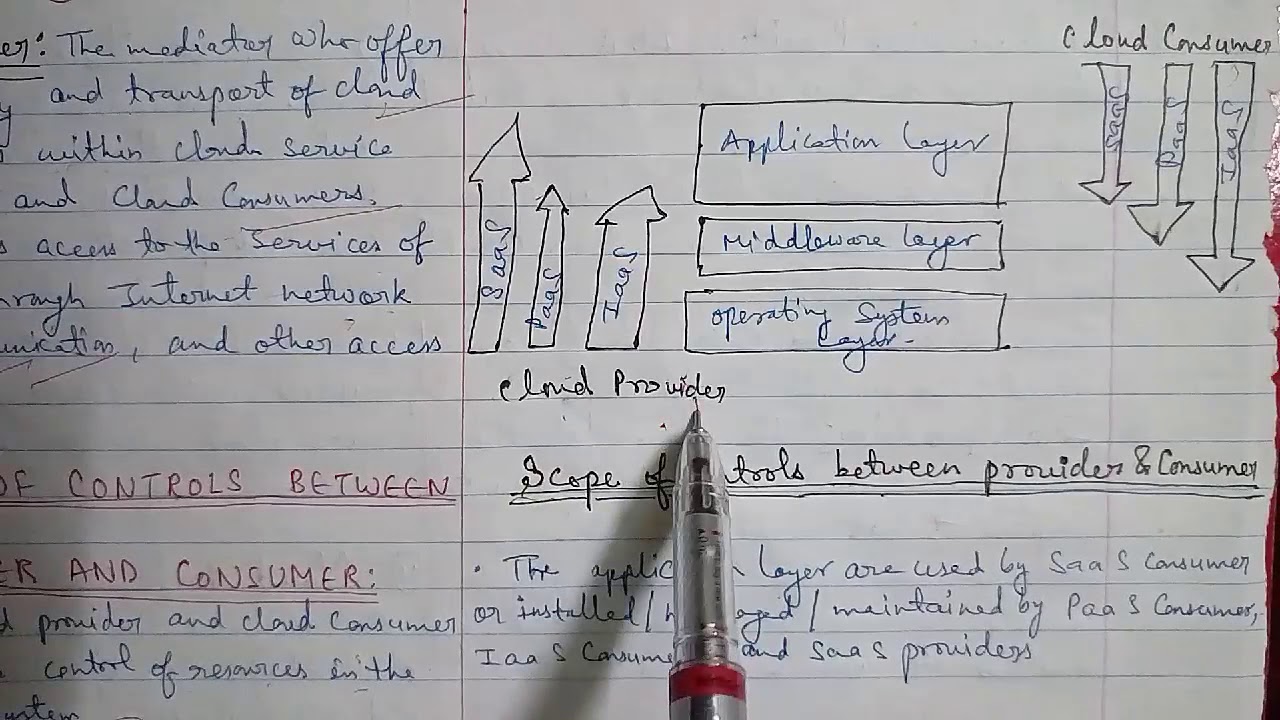 er: The mediator who offer
and transport of cloud
within cloud service
and Cloud Consumers.
s access to the services of
hrough Internet network
unication, and other access
OF CONTROLS BETWEEN
ER AND CONSUMER:
d provider and cloud consumer
control of resources in the
ystem
Cloud Consumer
SaaS
PaaS
IaaS
Application layer
Middleware layer
Operating System
Layer-
SaaS
PaaS
IaaS
Cloud Provider
Scope of ntrols between provider & Consumer
• The applic layer are used by SaaS Consumer
or installed / aged / maintained by PaaS Consumer,
IaaS Consume and SaaS providers